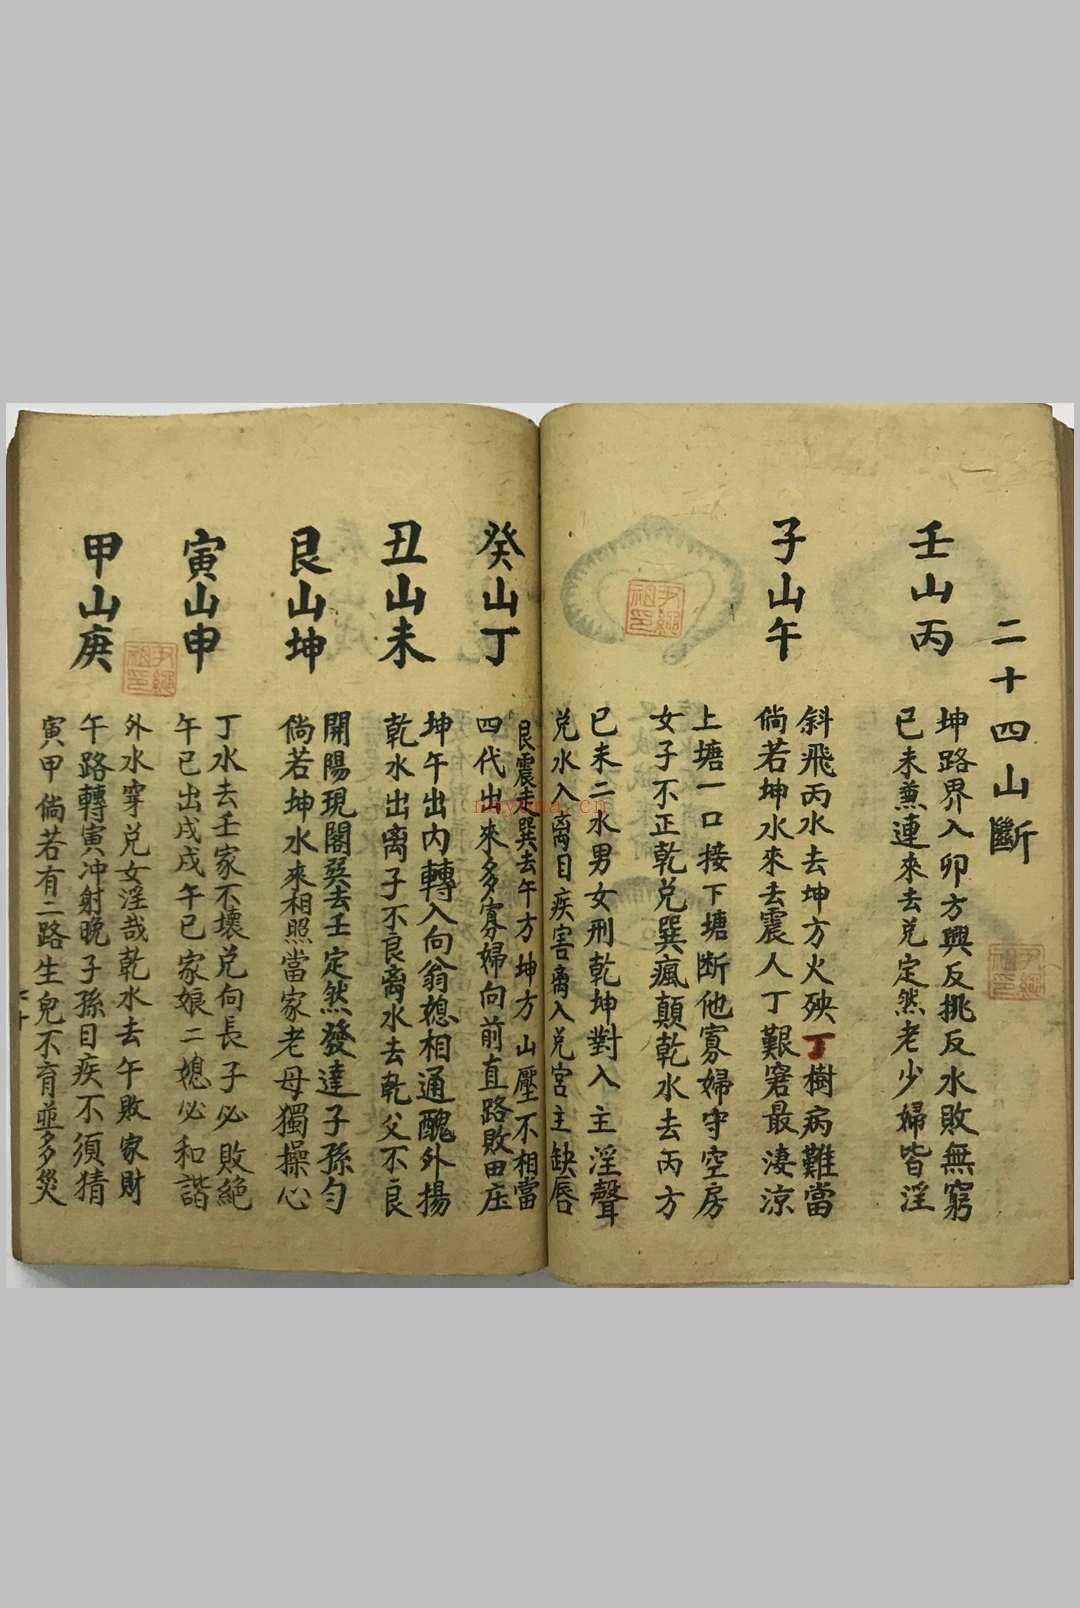 二十四山斷
壬山丙
坤路界入卯方興反挑反水敗無窮
已未兼連來去兑定然老少婦皆淫
子山午
斜飛丙水去坤方火殃丁樹病難當
倘若坤水來去震人丁艱窘最淒涼
上塘一口接下塘斷他寡婦守空房
女子不正乾兑巽瘋顛乾水去丙方
已未二水男女刑乾坤對入主淫聲
兑水入离目疾害离入兑宮主缺唇
癸山丁
艮震走巽去午方坤方山壓不相當
四代出來多寡婦向前直路敗田庄
丑山未
坤午出内轉入向翁媳相通醜外揚
乾水出离子不良离水去乾父不良
艮山坤
開陽現閣巽去壬定然發達子孫勻
倘若坤水來相照當家老母獨操心
寅山申
丁水去壬家不壞兑向長子必敗絕
午已出戌戌午已家娘二媳必和諧
甲山庚
外水穿兑女淫哉乾水去午敗家財
午路轉寅冲射晚子孫目疾不須猜
寅甲倘若有二路生兒不育並多災
nayona.cn